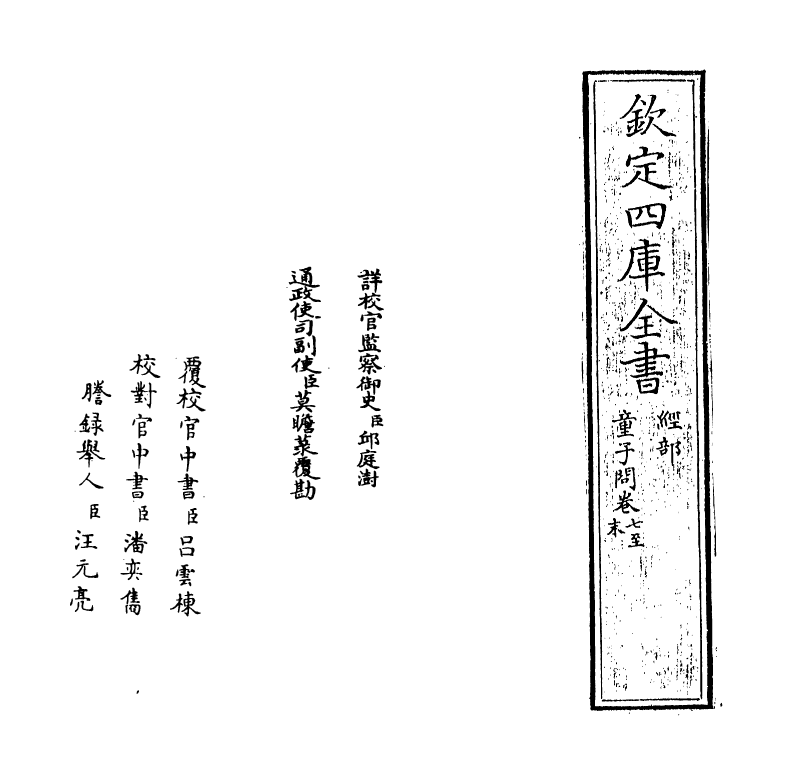 欽定四庫全書
經部
童子問卷七至末
詳校官監察御史臣邱庭澍
通政使司副使臣莫瞻菉覆勘
覆校官中書臣呂雲棟
校對官中書臣潘奕雋
謄錄舉人臣汪元亮